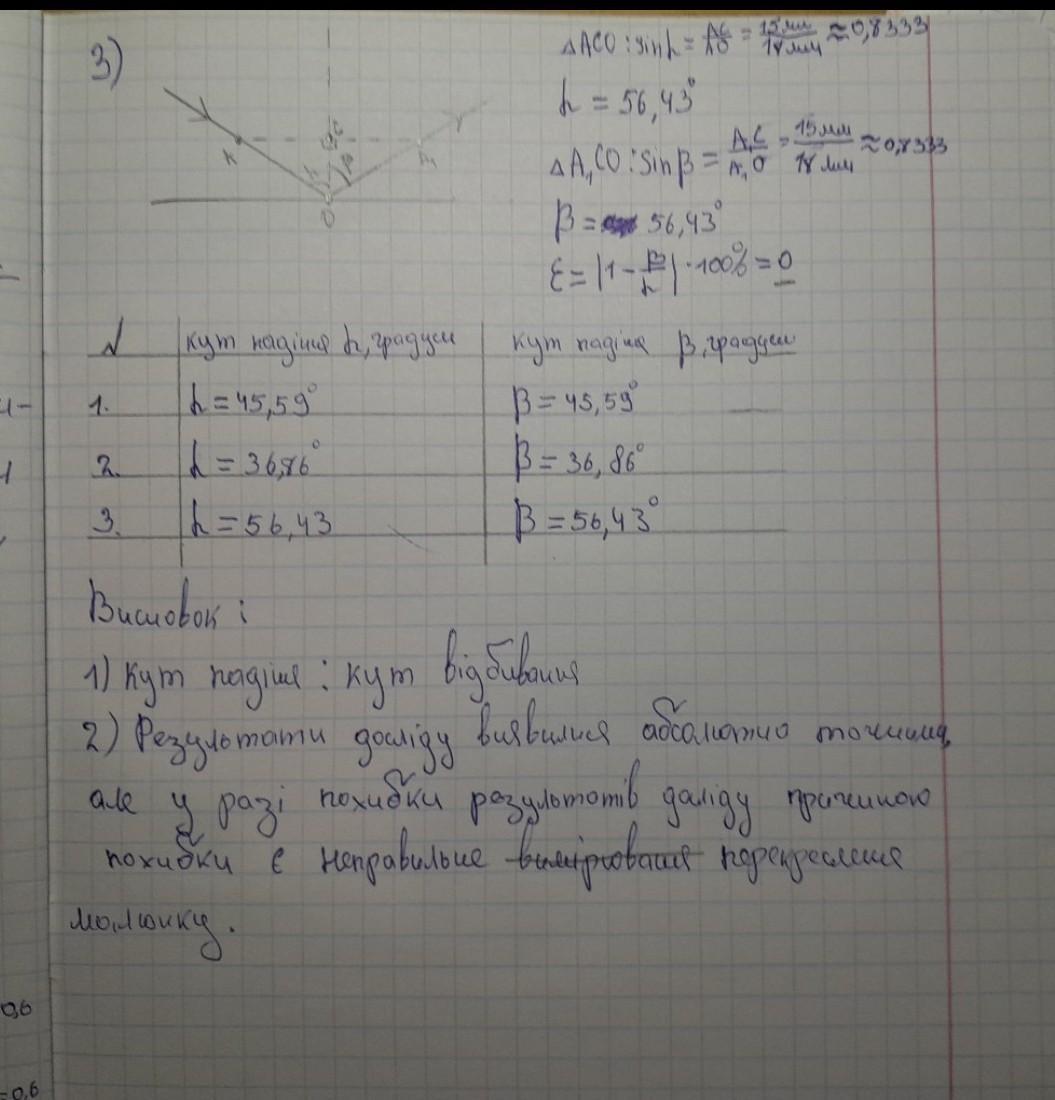 3)
ΔACO: sin α = AC/AO = 15мм/18мм ≈ 0,8333
α = 56,43°
ΔA₁CO: sin β = A₁C/A₁O = 15мм/18мм ≈ 0,8333
β = 56,43°
ε = |1 - β/α| · 100% = 0
A C A₁
α β
O
№ кут падіння α, градуси кут падіння β, градуси
1. α = 45,59° β = 45,59°
2. α = 36,86° β = 36,86°
3. α = 56,43 β = 56,43°
Висновок:
1) Кут падіння : кут відбивання
2) Результати досліду виявилися абсолютно точними,
але у разі похибки результатів даліду причиною
похибки є неправильне вимірювання перекреслення
малюнку.
0,6
=0,6